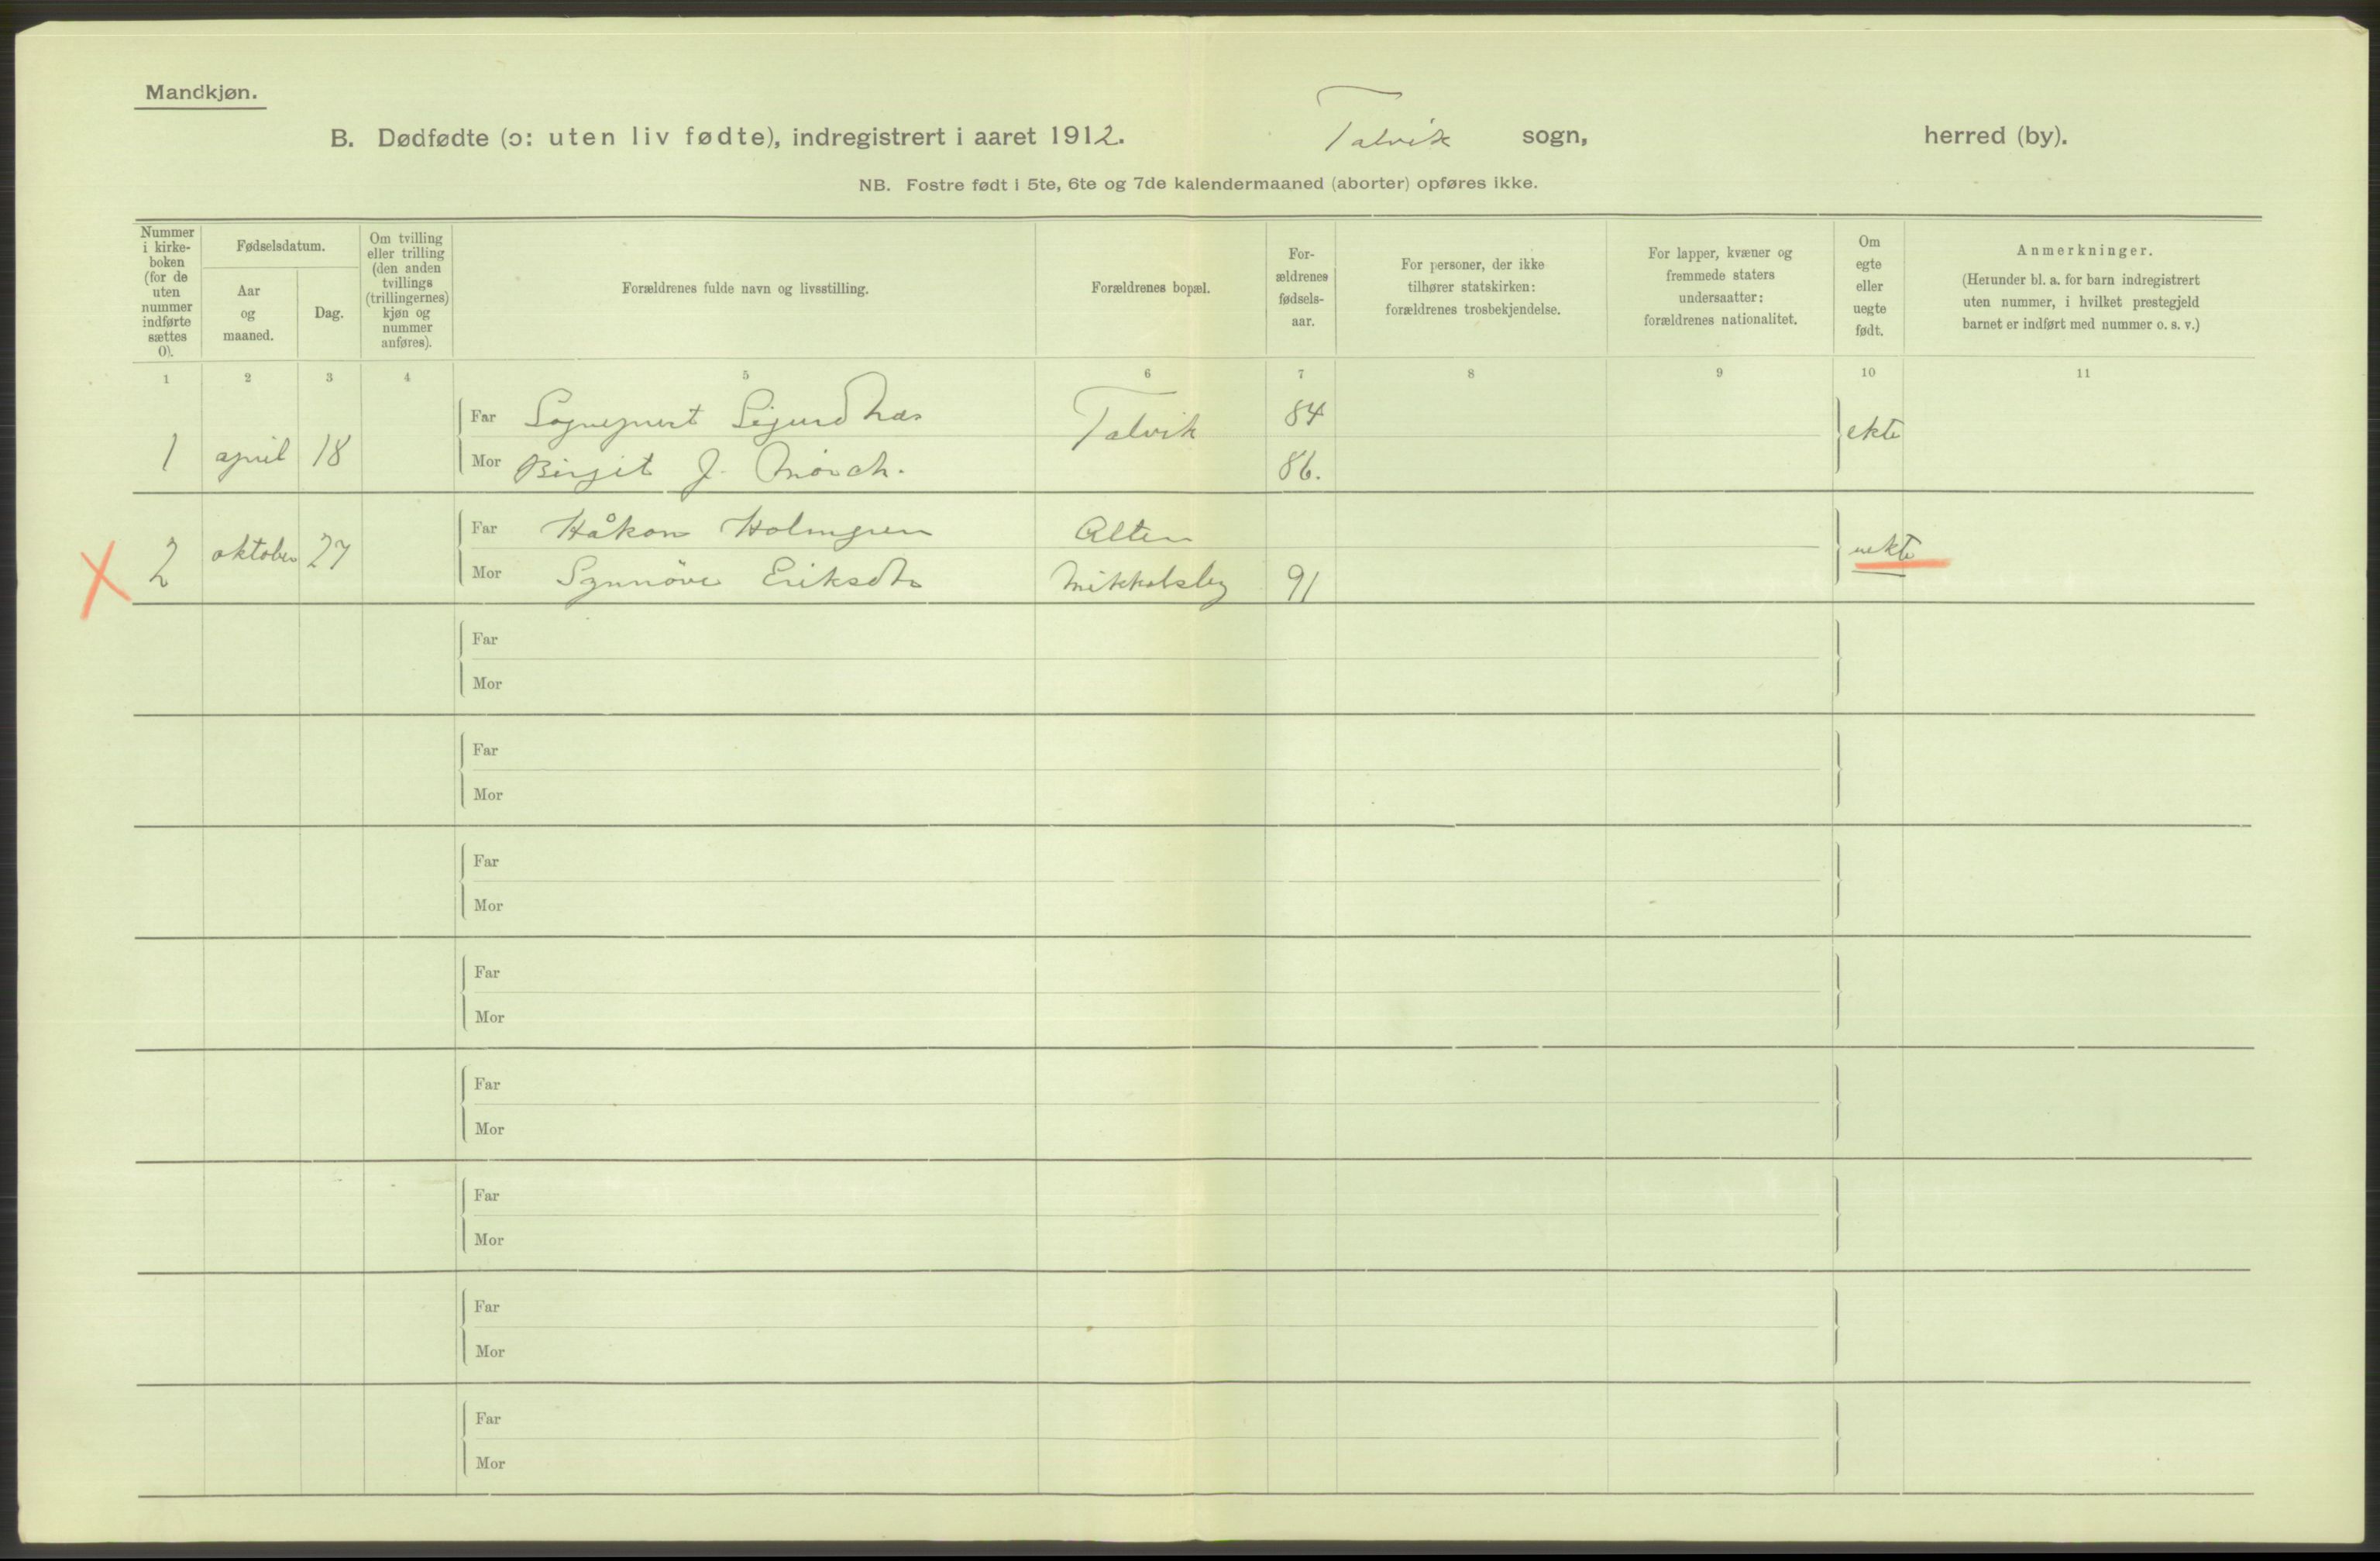 Mandkjøn.
B. Dødfødte (ɔ: uten liv fødte), indregistrert i aaret 1912. Talvik sogn, herred (by).
NB. Fostre født i 5te, 6te og 7de kalendermaaned (aborter) opføres ikke.
Nummer
i kirke-
boken
(for de
uten
nummer
indførte
sættes
0).
Fødselsdatum.
Aar
og
maaned.
Dag.
Om tvilling
eller trilling
(den anden
tvillings
(trillingernes)
kjøn og
nummer
anføres).
Forældrenes fulde navn og livsstilling.
Forældrenes bopæl.
For-
ældrenes
fødsels-
aar.
For personer, der ikke
tilhører statskirken:
forældrenes trosbekjendelse.
For lapper, kvæner og
fremmede staters
undersaatter:
forældrenes nationalitet.
Om
egte
eller
uegte
født.
Anmerkninger.
(Herunder bl. a. for barn indregistrert
uten nummer, i hvilket prestegjeld
barnet er indført med nummer o. s. v.)
1 2 3 4 5 6 7 8 9 10 11
Far Sogneprest Sigurd Talvik 84 ekte
1 april 18
Mor Birgit J. Mørch. 86.
Far Håkon Holmgren Alten
2 oktober 27 uekte
Mor Synnöve Eriksdtr Mikkelsby 91
Far
Mor
Far
Mor
Far
Mor
Far
Mor
Far
Mor
Far
Mor
Far
Mor
Far
Mor